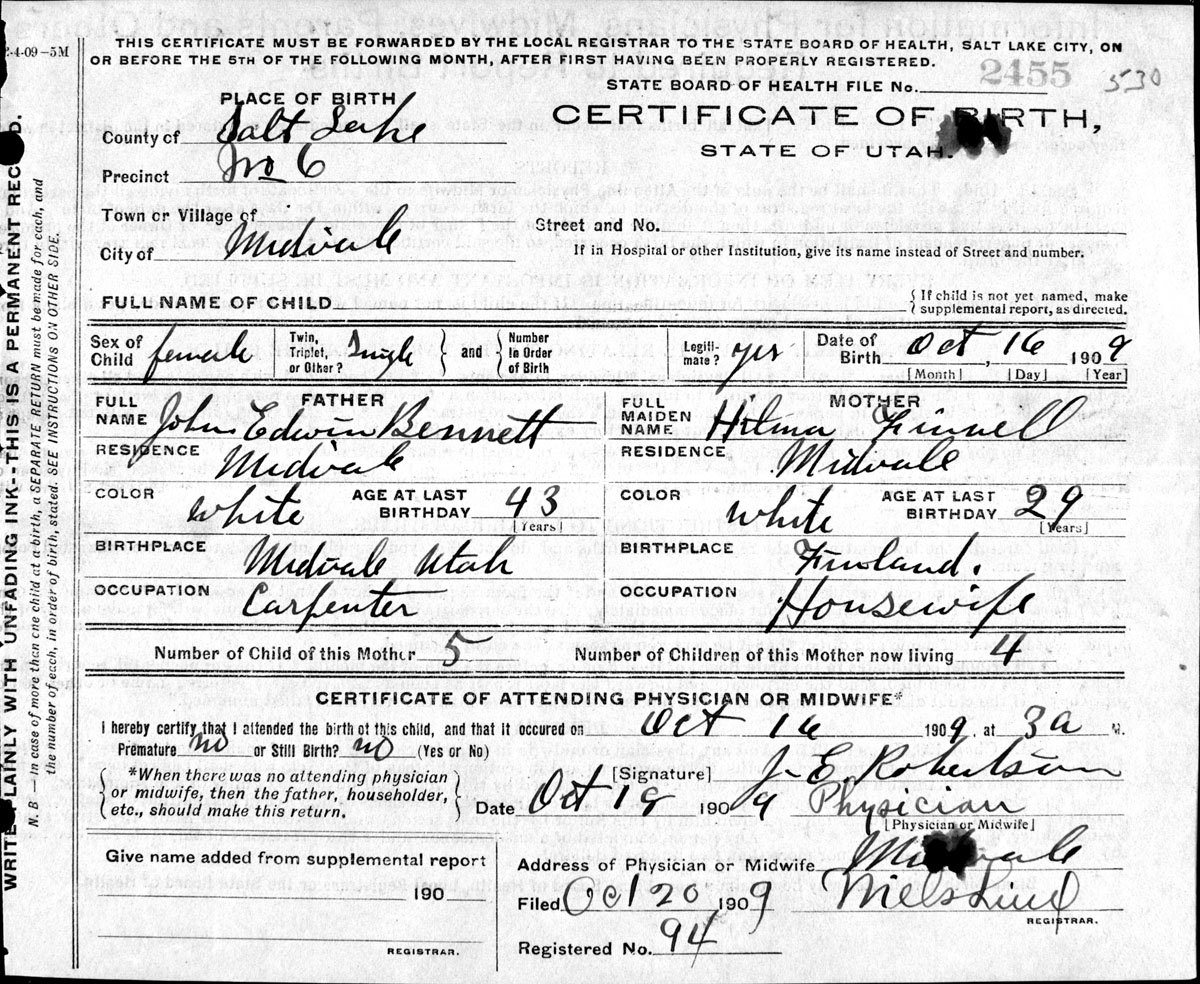 2-4-09-5M
THIS CERTIFICATE MUST BE FORWARDED BY THE LOCAL REGISTRAR TO THE STATE BOARD OF HEALTH, SALT LAKE CITY, ON
OR BEFORE THE 5TH OF THE FOLLOWING MONTH, AFTER FIRST HAVING BEEN PROPERLY REGISTERED.
2455
530
STATE BOARD OF HEALTH FILE No.
PLACE OF BIRTH
County of Salt Lake
Precinct No 6
Town or Village of
City of Midvale
CERTIFICATE OF BIRTH,
STATE OF UTAH.
Street and No.
If in Hospital or other Institution, give its name instead of Street and number.
FULL NAME OF CHILD
{ If child is not yet named, make
supplemental report, as directed.
Sex of Child female
Twin, Triplet, or Other? Single } and { Number In Order of Birth
Legiti-mate? yes
Date of Birth Oct 16, 1909
[Month] [Day] [Year]
FATHER
FULL NAME John Edwin Bennett
RESIDENCE Midvale
COLOR white AGE AT LAST BIRTHDAY 43
[Years]
BIRTHPLACE Midvale Utah
OCCUPATION Carpenter
MOTHER
FULL MAIDEN NAME Hilma Finnell
RESIDENCE Midvale
COLOR white AGE AT LAST BIRTHDAY 29
[Years]
BIRTHPLACE Finland.
OCCUPATION Housewife
Number of Child of this Mother 5 Number of Children of this Mother now living 4
CERTIFICATE OF ATTENDING PHYSICIAN OR MIDWIFE*
I hereby certify that I attended the birth of this child, and that it occured on Oct 16 1909, at 3a M.
Premature no or Still Birth? no (Yes or No)
{ *When there was no attending physician
or midwife, then the father, householder,
etc., should make this return. }
[Signature] J. E. Robertson
Date Oct 19 1909 Physician
[Physician or Midwife]
Give name added from supplemental report
190
REGISTRAR.
Address of Physician or Midwife Midvale
Filed Oct 20 1909 Niels Lind
REGISTRAR.
Registered No. 94
WRITE PLAINLY WITH UNFADING INK-THIS IS A PERMANENT RECORD.
N. B.-In case of more then one child at birth, a SEPARATE RETURN must be made for each, and
the number of each, in order of birth, stated. SEE INSTRUCTIONS ON OTHER SIDE.